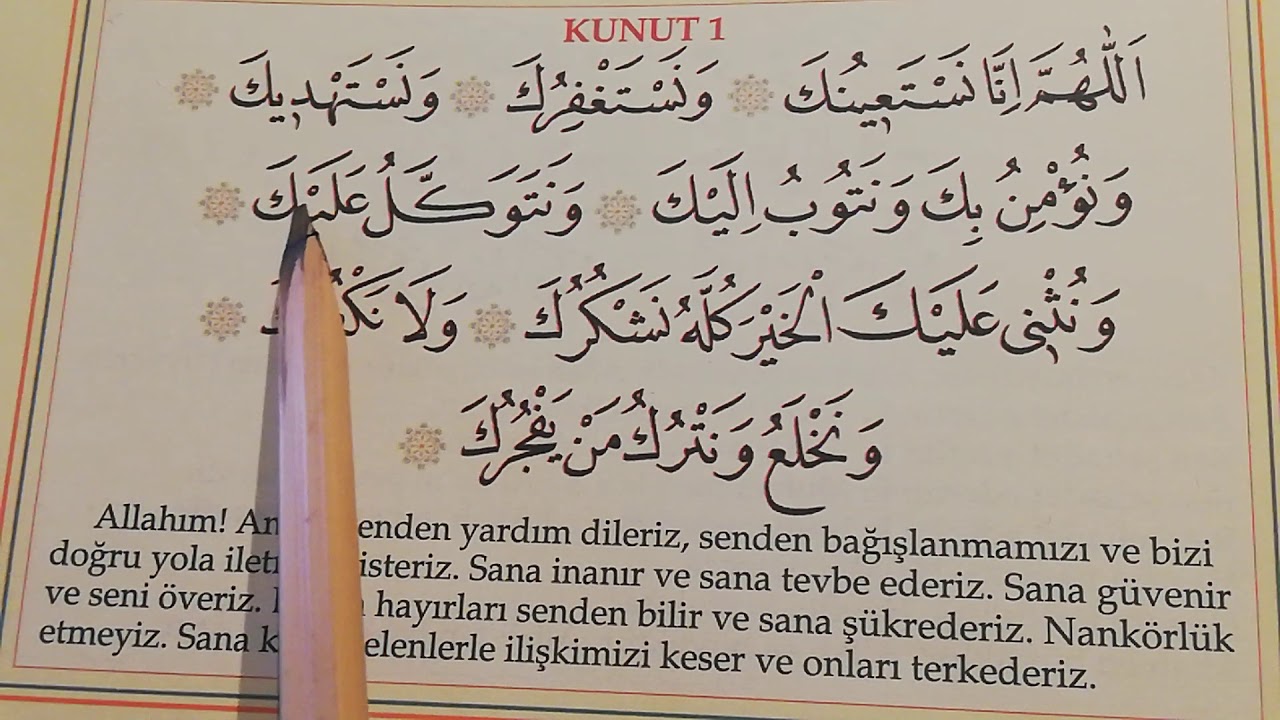 KUNUT 1
اَللّٰهُمَّ اِنَّا نَسْتَعِينُكَ وَنَسْتَغْفِرُكَ وَنَسْتَهْدِيكَ
وَنُؤْمِنُ بِكَ وَنَتُوبُ اِلَيْكَ وَنَتَوَكَّلُ عَلَيْكَ
وَنُثْنِى عَلَيْكَ الْخَيْرَ كُلَّهُ نَشْكُرُكَ وَلَا
وَنَخْلَعُ وَنَتْرُكُ مَنْ يَفْجُرُكَ
Allahım! yardım dileriz, senden bağışlanmamızı ve bizi
doğru yola isteriz. Sana inanır ve sana tevbe ederiz. Sana güvenir
ve seni överiz. hayırları senden bilir ve sana şükrederiz. Nankörlük
etmeyiz. Sana ilişkimizi keser ve onları terkederiz.